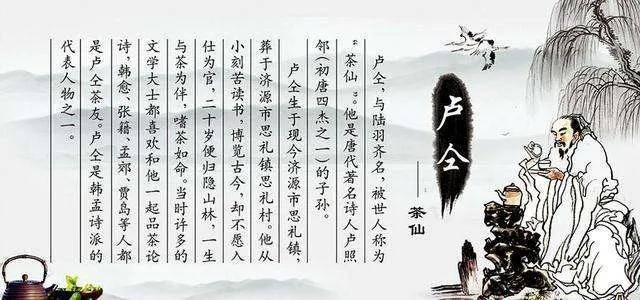 卢仝
——茶仙
卢仝，与陆羽齐名，被世人称为
“茶仙”。他是唐代著名诗人卢照
邻(初唐四杰之一)的子孙。
卢仝生于现今济源市思礼镇，
葬于济源市思礼镇思礼村。他从
小刻苦读书，博览古今，却不愿入
仕为官，二十岁便归隐山林，一生
与茶为伴，嗜茶如命。当时许多的
文学大士都喜欢和他一起品茶论
诗，韩愈、张籍、孟郊、贾岛等人都
是卢仝茶友。卢仝是韩孟诗派的
代表人物之一。